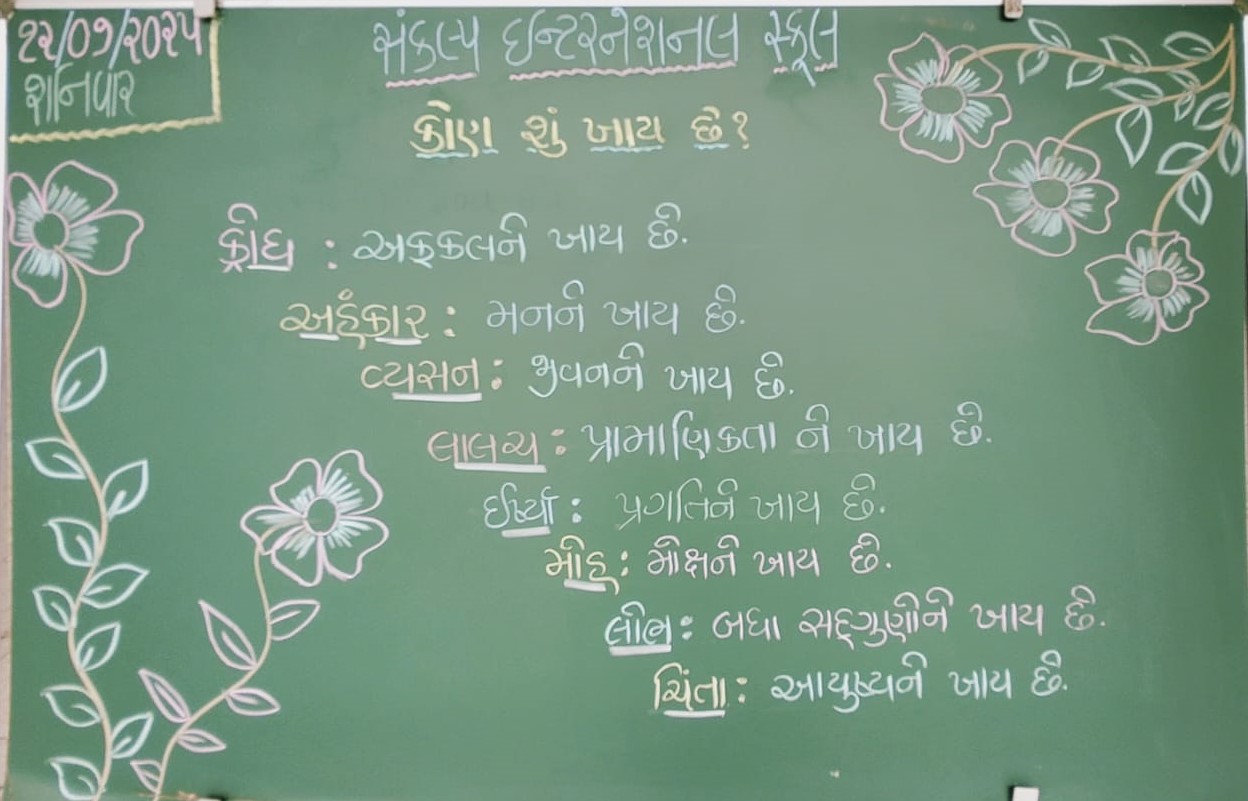 ૨૨/૦૧/૨૦૨૫
શનિવાર
સંકલ્પ ઇન્ટરનેશનલ સ્કૂલ
કોણ શું ખાય છે?
ક્રોધ : અકકલને ખાય છે.
અહંકાર : મનને ખાય છે.
વ્યસન : જીવનને ખાય છે.
લાલચ : પ્રામાણિકતા ને ખાય છે.
ઈર્ષ્યા : પ્રગતિને ખાય છે.
મોહ : મોક્ષને ખાય છે.
લોભ : બધા સદ્ગુણોને ખાય છે.
ચિંતા : આયુષ્યને ખાય છે.